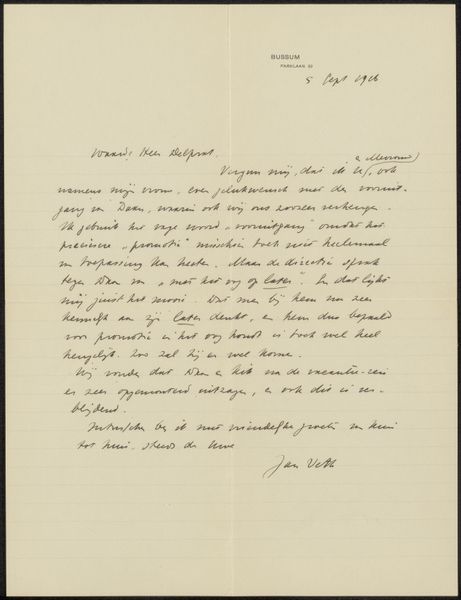 BUSSUM
PARKLAAN
5 Sept 1916
Waarde Heer Delprat.
& Mevrouw
Vergun mij, dat ik U, ook
namens mijn vrouw, even gelukwensch met den vooruit-
gang van Daan, waarin ook wij ons zoozeer verheugen.
Ik gebruik het vage woord „vooruitgang" omdat het
preciesere „promotie" misschien toch niet heelemaal
van toepassing kan heeten. Maar de directie sprak
tegen Daan van „met het oog op later". En dat lijkt
mij juist het mooie. Dat men bij hem nu zeer
kennelijk aan zijn later denkt, en hem dus bepaald
voor promotie in het oog houdt is toch wel heel
heugelijk. Zoo zal hij er wel komen.
Wij vonden dat Daan en
er zeer opgemonterd uitzagen, en ook dit is ver-
blijdend.
Intusschen ben ik met vriendelijke groeten van huis
tot huis. steeds de Uwe
Jan Veth